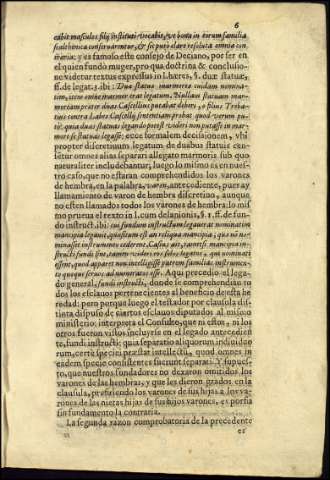 6
exibit masculos filij instituti vocabit, ut bona in eorum familia
scalchonica conseruarentur, & sic puto clarè resoluta omnia con-
traria; y es famoso este consejo de Deciano, por ser en
el quien fundò muger, pro qua doctrina & conclusio-
ne videtur textus expressus in l. hæres, §. duæ statuæ,
ff. de legat. 3. ibi: Duæ statuæ marmoreæ cuidam nomina-
tim, item omne marmor erat legatum. Nullam statuam mar-
moream præter duas Cascellius putabat deberi, o filius Treba-
tius contra Labeo Cascellij sententiam probat quod verum pu-
to: quia duas statuas legando potest videri non putasse in mar-
more se statuas legasse; ecce formalem decisionem, vbi
propter discretiuum legatum de duabus statuis cen-
setur omnes alias separari à legato marmoris sub quo
naturaliter includebantur, luego lo mismo es en nues-
tro caso, que no estaran comprehendidos los varones
de hembra, en la palabra, varon, antecediente, pues ay
llamamiento de varon de hembra discretiuo, aunque
no esten llamados todos los varones de hembra: lo mis
mo prueua el texto in l. cum de lanionis, §. 1. ff. de fun-
do instruct. ibi: cui fundum instructum legauerat nominatim
mancipia legauit, quæsitum est an reliqua mancipia, quæ nō no-
minasset instrumento cederent, Casius ait, tametsi mancipia in-
structi fundi sint, tamen videri eos solos legatos, qui nominati
essent, quod appareret non intellexisse patrem familias instrumen-
to quoque seruos ad numeratos esse. Aqui precedio al lega-
do general, fundi instructi, donde se comprehendian to
dos los esclauos pertenecientes al beneficio de esta he
redad: pero porque luego el testador por clausula dis-
tinta dispuso de ciertos esclauos diputados al mismo
ministerio: interpreta el Consulto, que ni estos, ni los
otros fueron vistos incluyrse en el legado antecedien-
te, fundi instructi: quia separatio aliquorum indiuiduo
rum, certè speciei præstat intellectū, quod omnes in
eadem specie consistentes fuerunt separati. Y supues-
to, que nuestros fundadores no dexaron omitidos los
varones de las hembras, y que les dieron grados en la
clausula, prefiriendo los varones de sus hijas à los va-
rones de las nietas hijas de sus hijos varones, es porfia
sin fundamento la contraria.
La segunda razon comprobatoria de la precedente
es